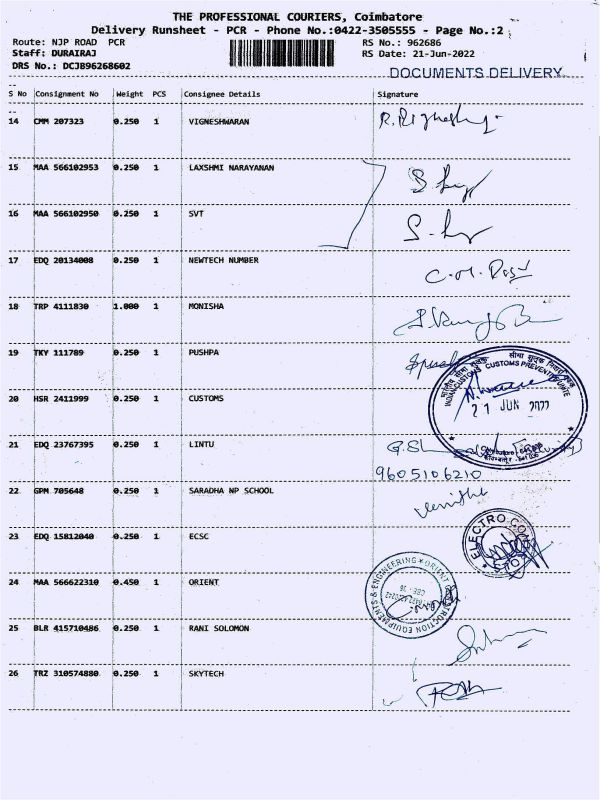 THE PROFESSIONAL COURIERS, Coimbatore
Delivery Runsheet - PCR - Phone No.:0422-3505555 - Page No.:2
Route: NJP ROAD PCR
RS No.: 962686
Staff: DURAIRAJ
RS Date: 21-Jun-2022
DRS No.: DCJB96268602
DOCUMENTS DELIVERY
S No Consignment No Weight PCS Consignee Details Signature
14 CMM 207323 0.250 1 VIGNESHWARAN
15 MAA 566102953 0.250 1 LAXSHMI NARAYANAN
16 MAA 566102950 0.250 1 SVT
17 EDQ 20134008 0.250 1 NEWTECH NUMBER
18 TRP 4111830 1.000 1 MONISHA
19 TKY 111789 0.250 1 PUSHPA
INDIAN CUSTOMS CUSTOMS PREVENTIVE
20 HSR 2411999 0.250 1 CUSTOMS
21 JUN 2022
21 EDQ 23767395 0.250 1 LINTU
9605106210
22 GPM 705648 0.250 1 SARADHA NP SCHOOL
23 EDQ 15812040 0.250 1 ECSC
ELECTRO
24 MAA 566622310 0.450 1 ORIENT
ORIENT CONSTRUCTION EQUIPMENTS & ENGINEERING
25 BLR 415710486 0.250 1 RANI SOLOMON
26 TRZ 310574880 0.250 1 SKYTECH